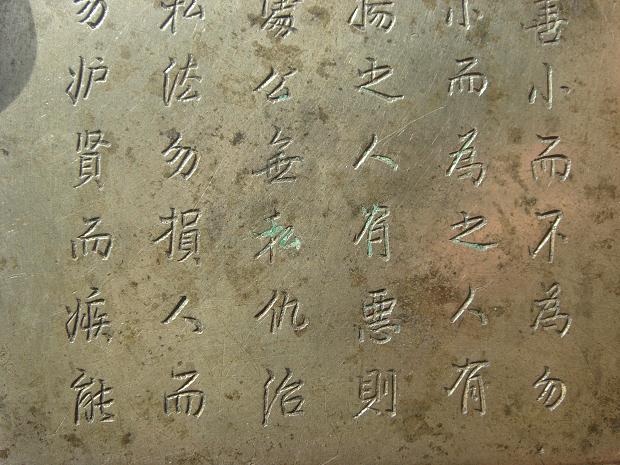 善小而不為勿
小而為之人有
揚之人有惡則
處公無私仇治
私法勿損人而
勿妒賢而嫉能